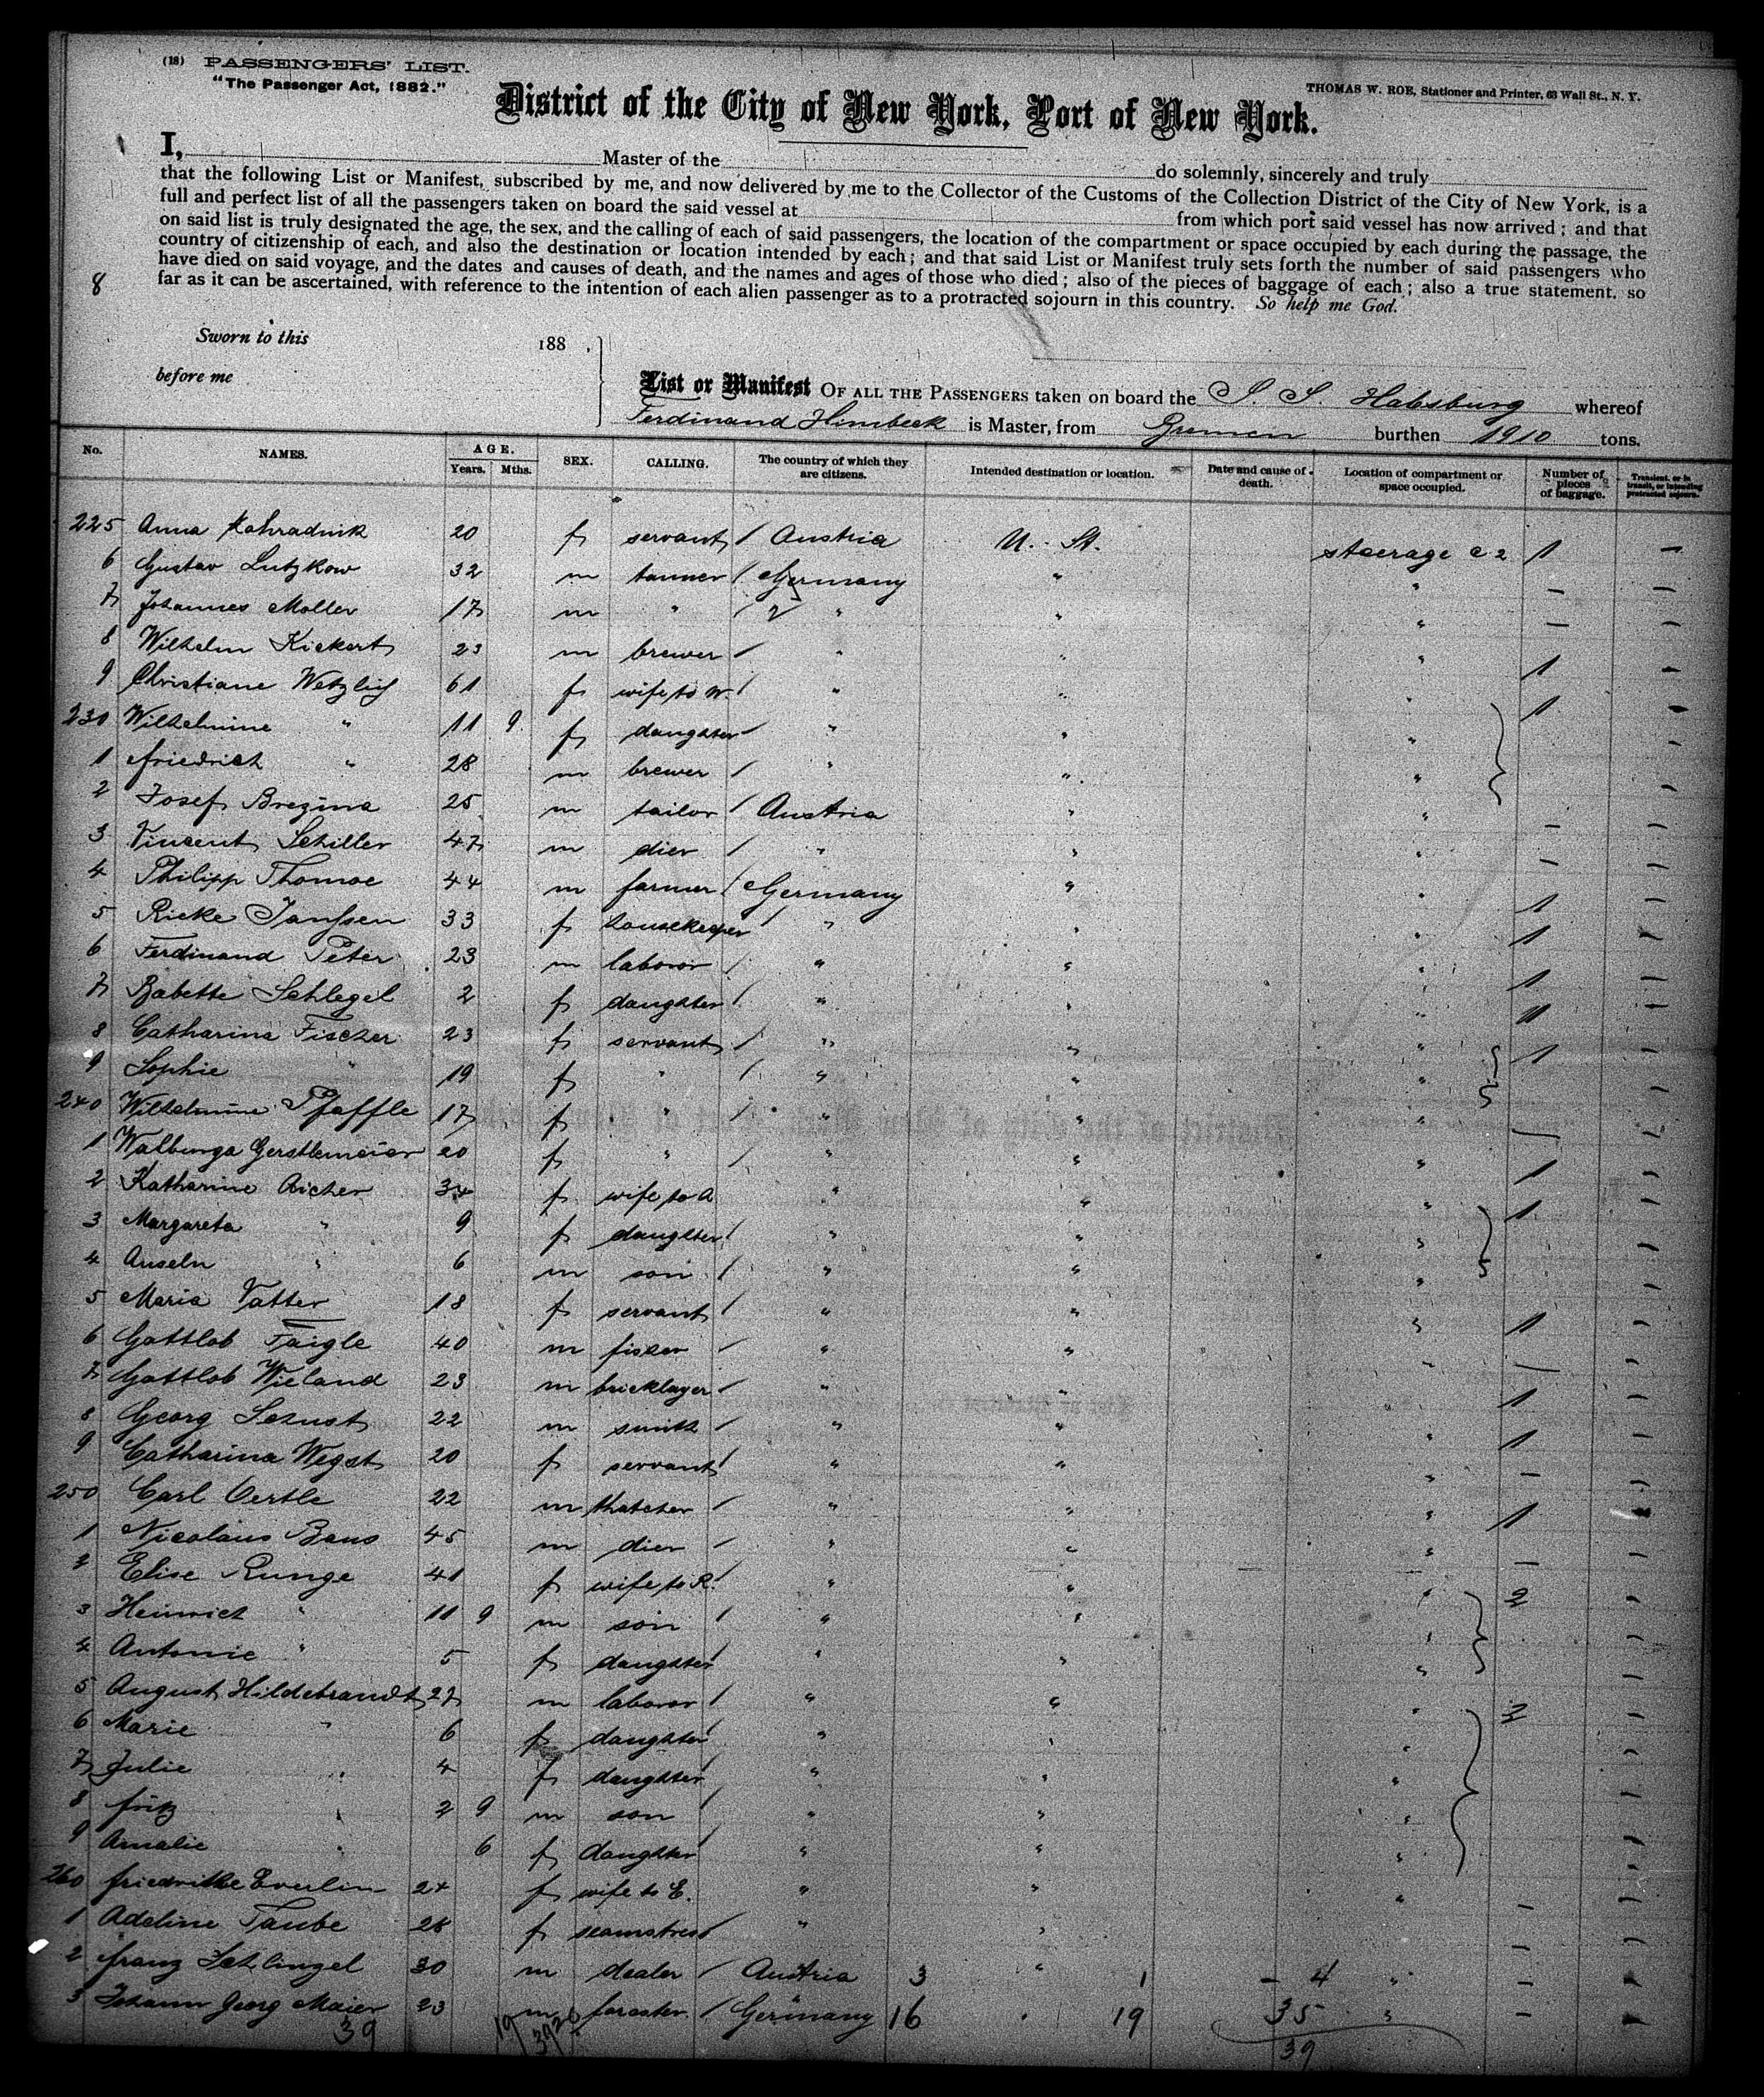 (18) PASSENGERS' LIST.
"The Passenger Act, 1882."
THOMAS W. ROE, Stationer and Printer, 63 Wall St., N. Y.
District of the City of New York, Port of New York.
I, Master of the do solemnly, sincerely and truly
that the following List or Manifest, subscribed by me, and now delivered by me to the Collector of the Customs of the Collection District of the City of New York, is a
full and perfect list of all the passengers taken on board the said vessel at from which port said vessel has now arrived; and that
on said list is truly designated the age, the sex, and the calling of each of said passengers, the location of the compartment or space occupied by each during the passage, the
country of citizenship of each, and also the destination or location intended by each; and that said List or Manifest truly sets forth the number of said passengers who
have died on said voyage, and the dates and causes of death, and the names and ages of those who died; also of the pieces of baggage of each; also a true statement, so
far as it can be ascertained, with reference to the intention of each alien passenger as to a protracted sojourn in this country. So help me God.
8
Sworn to this 188 .
before me
List or Manifest OF ALL THE PASSENGERS taken on board the S. S. Habsburg whereof
Ferdinand Himbeck is Master, from Bremen burthen 1910 tons.
No. NAMES. AGE. Years. Mths. SEX. CALLING. The country of which they are citizens. Intended destination or location. Date and cause of death. Location of compartment or space occupied. Number of pieces of baggage. Transient, or in transit, or intending protracted sojourn.
225 Anna Kohradnik 20 f servant / Austria U. St. steerage c 2 1 —
6 Gustav Lutzkow 32 m tanner / Germany " " — —
7 Johannes Moller 17 m " / " " " — —
8 Wilhelm Kickert 23 m brewer / " " " 1 —
9 Christiane Wetzlig 61 f wife to W. / " " " 1 —
230 Wilhelmine " 11 9 f daughter / " " " —
1 Friedrich " 28 m brewer / " " " —
2 Josef Brezina 25 m tailor / Austria " " — —
3 Vincent Schiller 47 m dier / " " " — —
4 Philipp Thomae 44 m farmer / Germany " " 1 —
5 Rieke Janssen 33 f housekeeper / " " " 1 —
6 Ferdinand Peter 23 m laboror / " " " 1 —
7 Babette Schlegel 2 f daughter / " " " —
8 Catharina Fischer 23 f servant / " " " 1 —
9 Sophie " 19 f " / " " " —
240 Wilhelmine Pfaffle 17 f " / " " " — —
1 Walbunga Gerstlemeier 20 f " / " " " 1 —
2 Katharine Aicher 34 f wife to A " " " 1 —
3 Margareta " 9 f daughter / " " " —
4 Anseln " 6 m son / " " " —
5 Maria Vatter 18 f servant / " " " 1 —
6 Gottlob Faigle 40 m fisher / " " " — —
7 Gottlob Wieland 23 m bricklayer / " " " 1 —
8 Georg Schust 22 m smith / " " " 1 —
9 Catharina Wegst 20 f servant / " " " — —
250 Carl Oertle 22 m thatcher / " " " 1 —
1 Nicolaus Baus 45 m dier / " " " — —
2 Elise Runge 41 f wife to R. / " " " 2 —
3 Heinrich " 11 9 m son / " " " —
4 Antonie " 5 f daughter / " " " —
5 August Hildebrandt 27 m laboror / " " " 2 —
6 Marie " 6 f daughter / " " " —
7 Julie " 4 f daughter / " " " —
8 Fritz " 2 9 m son / " " " —
9 Amalie " 6 f daughter / " " " —
260 Friedrike Everlin 24 f wife to E. " " " — —
1 Adeline Taube 28 f seamstress / " " — —
2 Franz Schlingel 30 m dealer / Austria 3 " 1 – 4 " — —
3 Johann Georg Maier 23 m forester / Germany 16 " 19 35 " — —
39 19 39 20 39